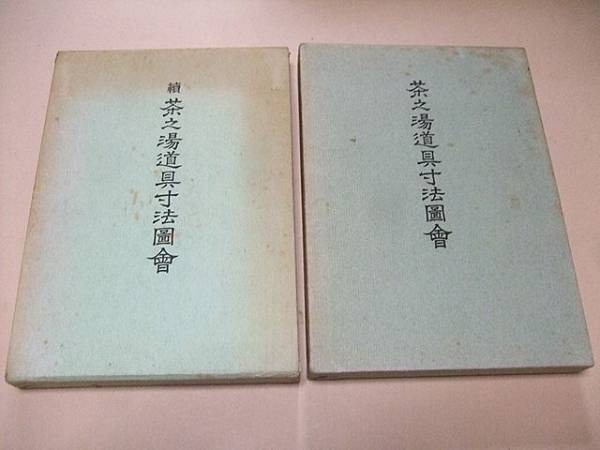 茶之湯道具寸法圖會
續
茶之湯道具寸法圖會